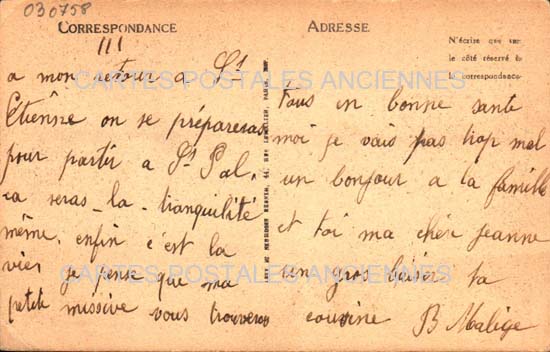 030758
CORRESPONDANCE
ADRESSE
III
N'écrire que sur
le côté réservé à
la correspondance
a mon retour a St
Étiênne on se préparesas
pour partir a St Pal,
sa seras la tranquilité
même, enfin c'est la
vies je pense que ma
petite missive vous trouveras
tous en bonne sante
moi je vais pas trop mal
un bonjour a la famille
et toi ma chér Jeanne
un gros baiser ta
cousine B Malige
CARTES POSTALES ANCIENNES
CARTES POSTALES ANCIENNES